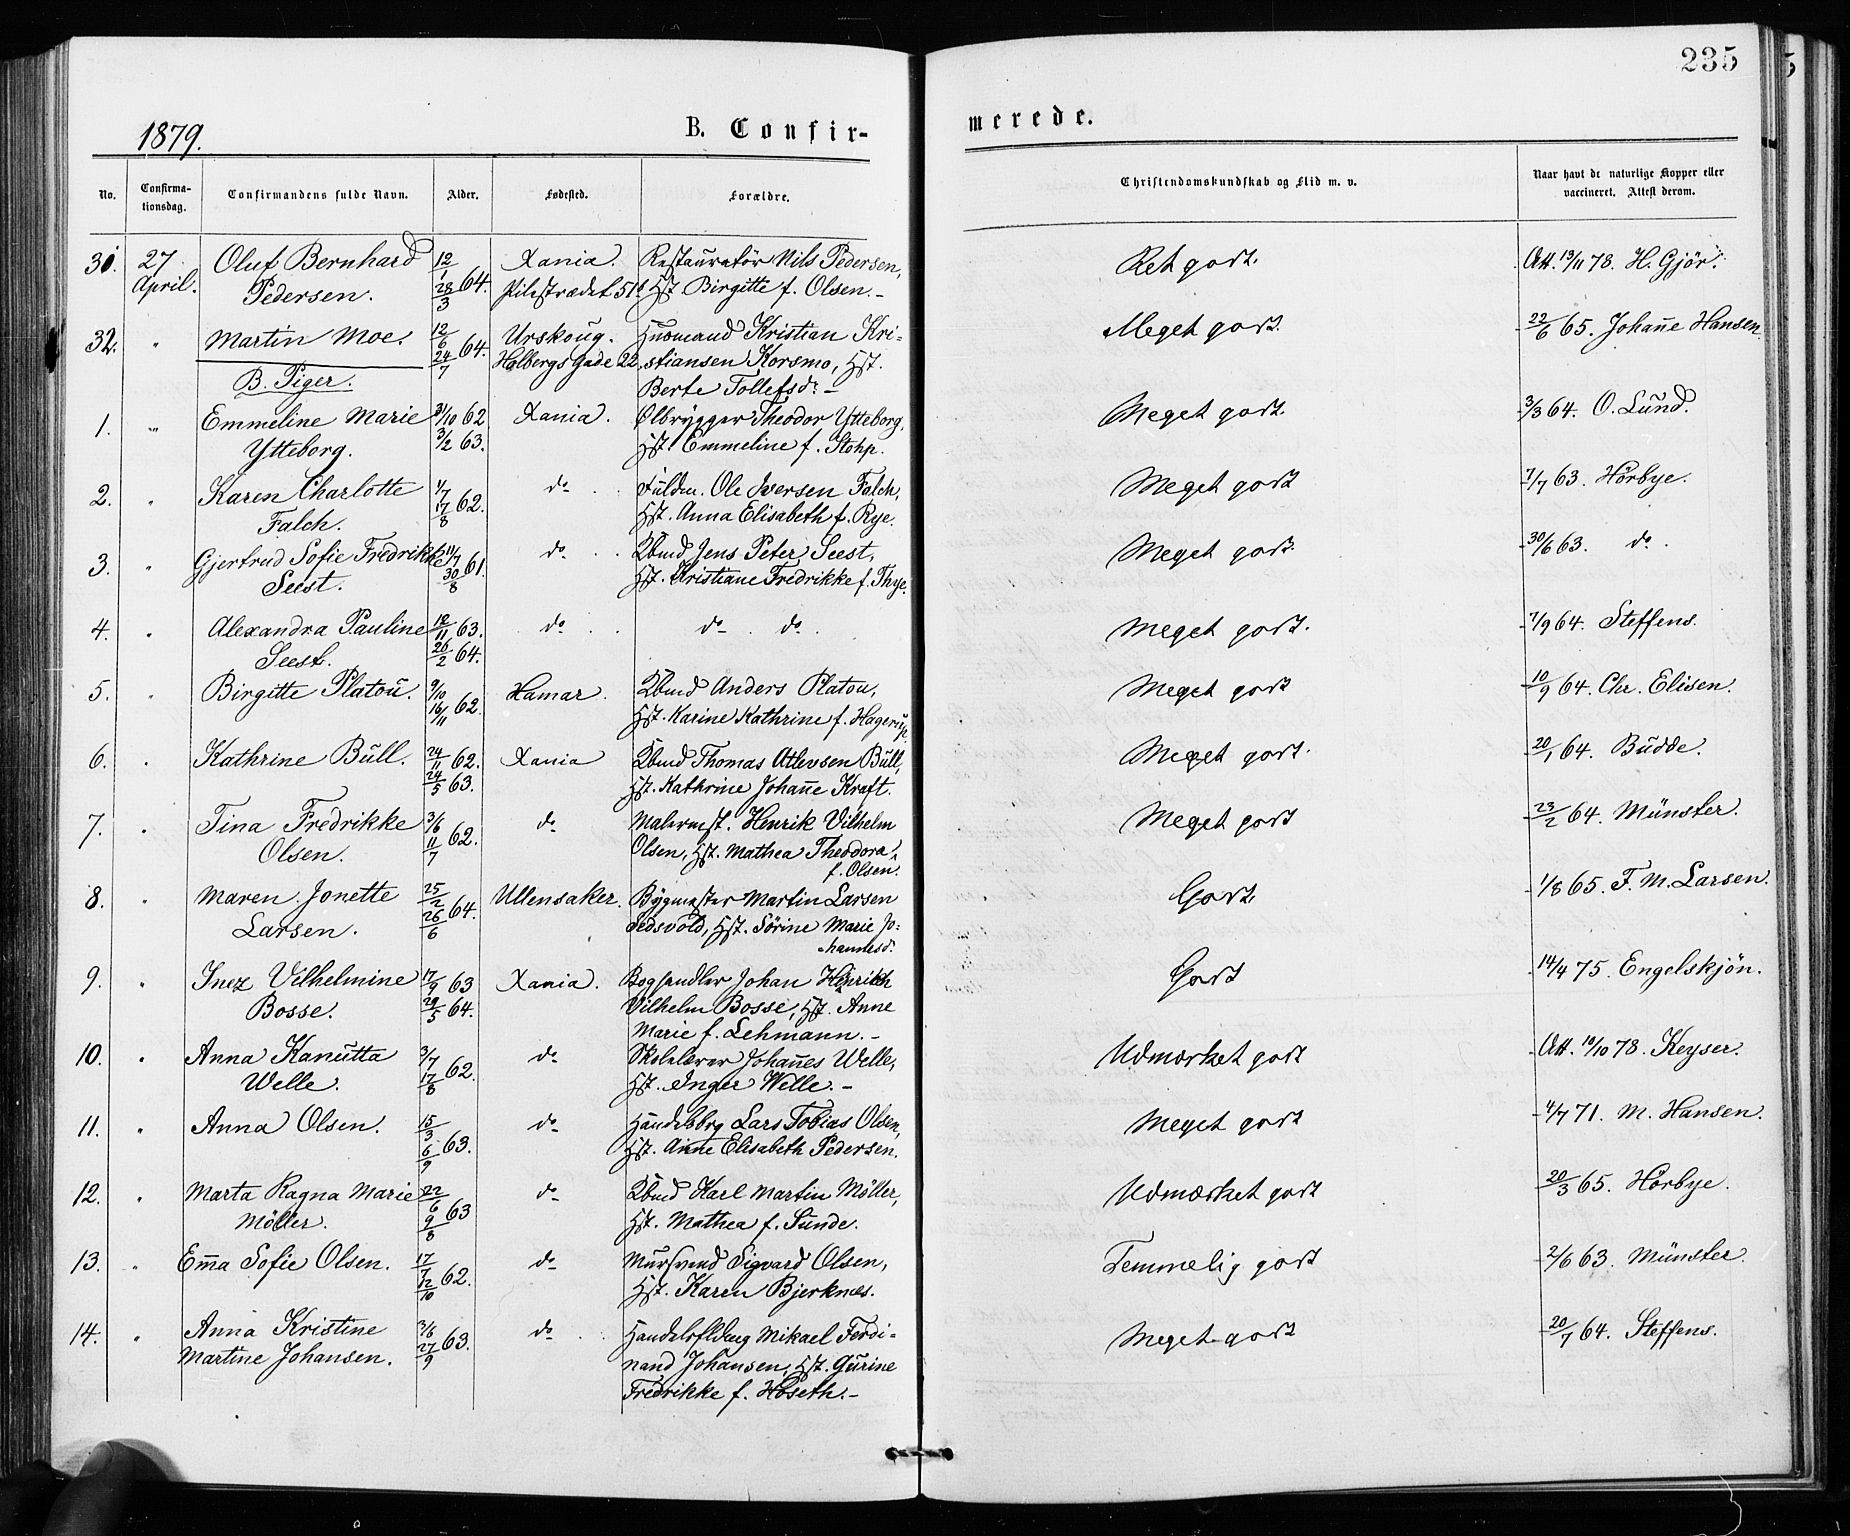 235
1879.
B. Confir-
merede.
No. Confirma-tionsdag. Confirmandens fulde Navn. Alder. Fødested. Forældre. Christendomskundskab og Flid m. v. Naar havt de naturlige Kopper eller vaccineret. Attest derom.
31. 27 Oluf Bernhard 12/1 Xania. Restauratør Nils Pedersen, Ret godt. Att. 13/11 78. H. Gjör.
April. Pedersen. 28/3 64. Pilestrædet 51 Hst. Birgitte f. Olsen.-
32. " Martin Moe. 12/6 Urskoug. Husmand Kristian Kri- Meget godt. 22/6 65. Johan̅e Hansen
24/7 64. Holbergs Gade 22. stiansen Korsmo, Hst.
B. Piger. Berte Tollefsdr -
1. " Emmeline Marie 31/10 62 Xania. Ølbrygger Theodor Ytteborg, Meget godt. 3/3 64. O. Lund.
Ytteborg. 3/2 63. Hst. Emmeline f. Stohp.
2. " Karen Charlotte 1/7 do Fuldm. Ole Iversen Falch, Meget godt 7/7 63. Hörbye.
Falch. 17/8 62. Hst. Anna Elisabeth f. Rye.
3. " Gjertrud Sofie Fredrikke 11/7 do Kbmd Jens Peter Seest, Meget godt. 30/6 63. do.
Seest. 30/8 61. Hst. Kristiane Fredrikke f. Thye.
4. " Alexandra Pauline 12/11 63. do do do. Meget godt. 7/9 64. Steffens.
Seest. 28/2 64.
5. " Birgitte Platou. 9/10 Hamar. Kbmd Anders Platou, Meget godt 10/9 64. Chr. Elisen.
16/11 62. Hst. Karine Kathrine f. Hagerup.
6. " Kathrine Bull. 24/11 62. Xania Kbmd Thomas Atlevsen Bull, Meget godt. 20/1 64. Budde.
24/5 63. Hst. Kathrine Johan̅e Kraft.
7. " Tina Fredrikke 3/6 do Malermst. Henrik Vilhelm Meget godt 23/2 64. Münster.
Olsen. 11/7 62. Olsen, Hst. Mathea Theodora
f. Olsen.
8. " Maren Jonette 25/2 Ullensaker. Bygmester Martin Larsen Godt 1/8 65. F. M. Larsen.
Larsen. 26/6 64. Hst. Sörine Marie Jo-
hannesd.
9. " Inez Vilhelmine 17/9 63 Xania. Boghandler Johan Henrich Godt 14/4 75. Engelskjön.
Bosse. 29/5 64. Vilhelm Bosse, Hst. Anne
Marie f. Lehmann.-
10. " Anna Kanutta 3/7 do Skolelærer Johan̅es Welle, Udmærket godt Att. 10/10 78. Keyser.
Welle. 17/8 62. Hst. Inger Welle.-
11. " Anna Olsen. 15/3 do Handelsbrg Lars Tobias Olsen, Meget godt 4/7 71. M. Hansen.
6/9 63. Hst. Anne Elisabeth Pedersen.
12. " Marta Ragna Marie 22/6 do Kbmd Karl Martin Möller, Udmærket godt 20/3 65. Hörbye.
Möller. 9/8 63 Hst. Mathea f. Sunde.
13. " Em̅a Sofie Olsen. 17/7 do Mursvend Sigvard Olsen, Temmelig godt 2/6 63. Münster.
12/10 62. Hst. Karen Bjerknes.
14. " Anna Kristine 3/6 do Mikael Ferdi- Meget godt 20/7 64. Steffens.
Martine Johansen. 27/9 63. nand Johansen, Hst. Gurine
Fredrikke f. Höseth.-